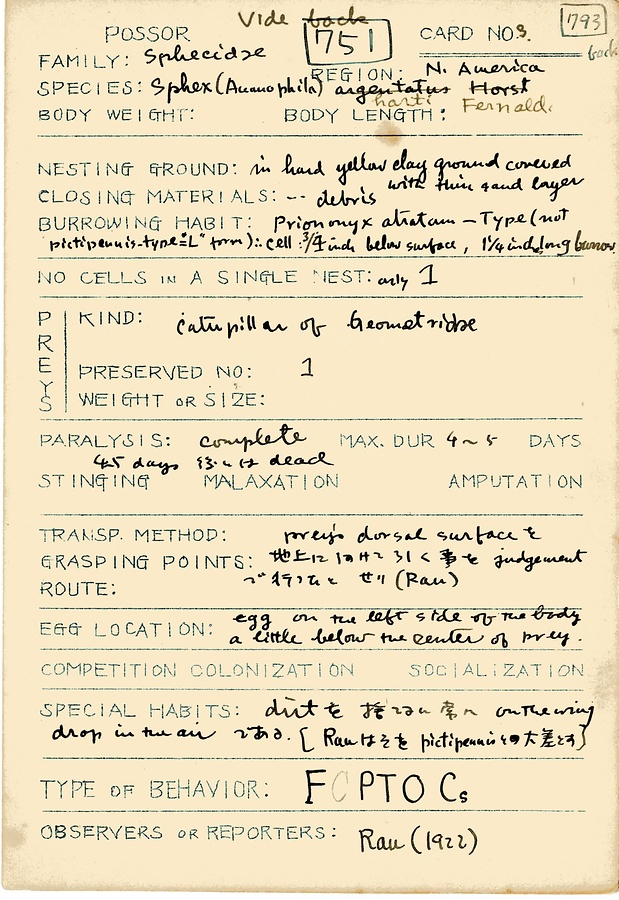 Vide back
POSSOR 751 CARD NO. 3. 793
back
FAMILY: Sphecidae
REGION: N. America
SPECIES: Sphex (Ammophila) argentatus Horst
harti Fernald.
BODY WEIGHT: BODY LENGTH:
NESTING GROUND: in hard yellow clay ground covered
with thin sand layer
CLOSING MATERIALS: -- debris
BURROWING HABIT: Prionomyx atratum - Type (not
pictipennis-type "L" form) ∴ cell: 3/4 inch below surface, 1 1/4 inch long burrow
NO CELLS IN A SINGLE NEST: only 1
PREYS
KIND: Caterpillar of Geometridae
PRESERVED NO: 1
WEIGHT OR SIZE:
PARALYSIS: complete MAX. DUR 4~5 DAYS
4-5 days dead
STINGING MALAXATION AMPUTATION
TRANSP. METHOD: prey's dorsal surface を
GRASPING POINTS: 地上に向けて引く事を judgement
ROUTE: (Rau)
EGG LOCATION: egg on the left side of the body
a little below the center of prey.
COMPETITION COLONIZATION SOCIALIZATION
SPECIAL HABITS: dirt を捨てるに常に on the wing
drop in the air である. [Rau はこを pictipennis との大差とす]
TYPE OF BEHAVIOR: FCPTO Cs
OBSERVERS OR REPORTERS: Rau (1922)